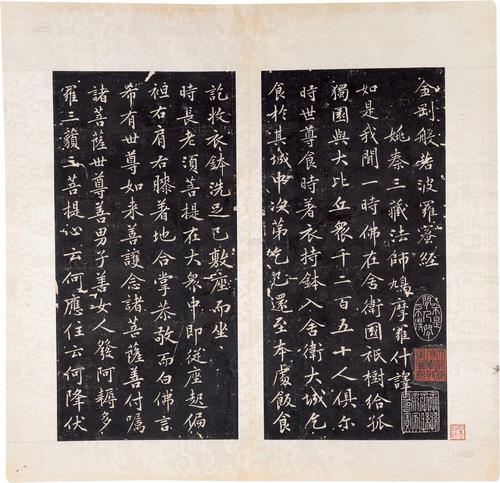 金剛般若波羅蜜經
姚秦三藏法師鳩摩羅什譯
如是我聞一時佛在舍衛國祇樹給孤
獨園與大比丘眾千二百五十人俱爾
時世尊食時著衣持鉢入舍衛大城乞
食於其城中次第乞已還至本處飯食
訖收衣鉢洗足已敷座而坐
時長老須菩提在大眾中即從座起偏
袒右肩右膝著地合掌恭敬而白佛言
希有世尊如来善護念諸菩薩善付囑
諸菩薩世尊善男子善女人發阿耨多
羅三藐三菩提心云何應住云何降伏